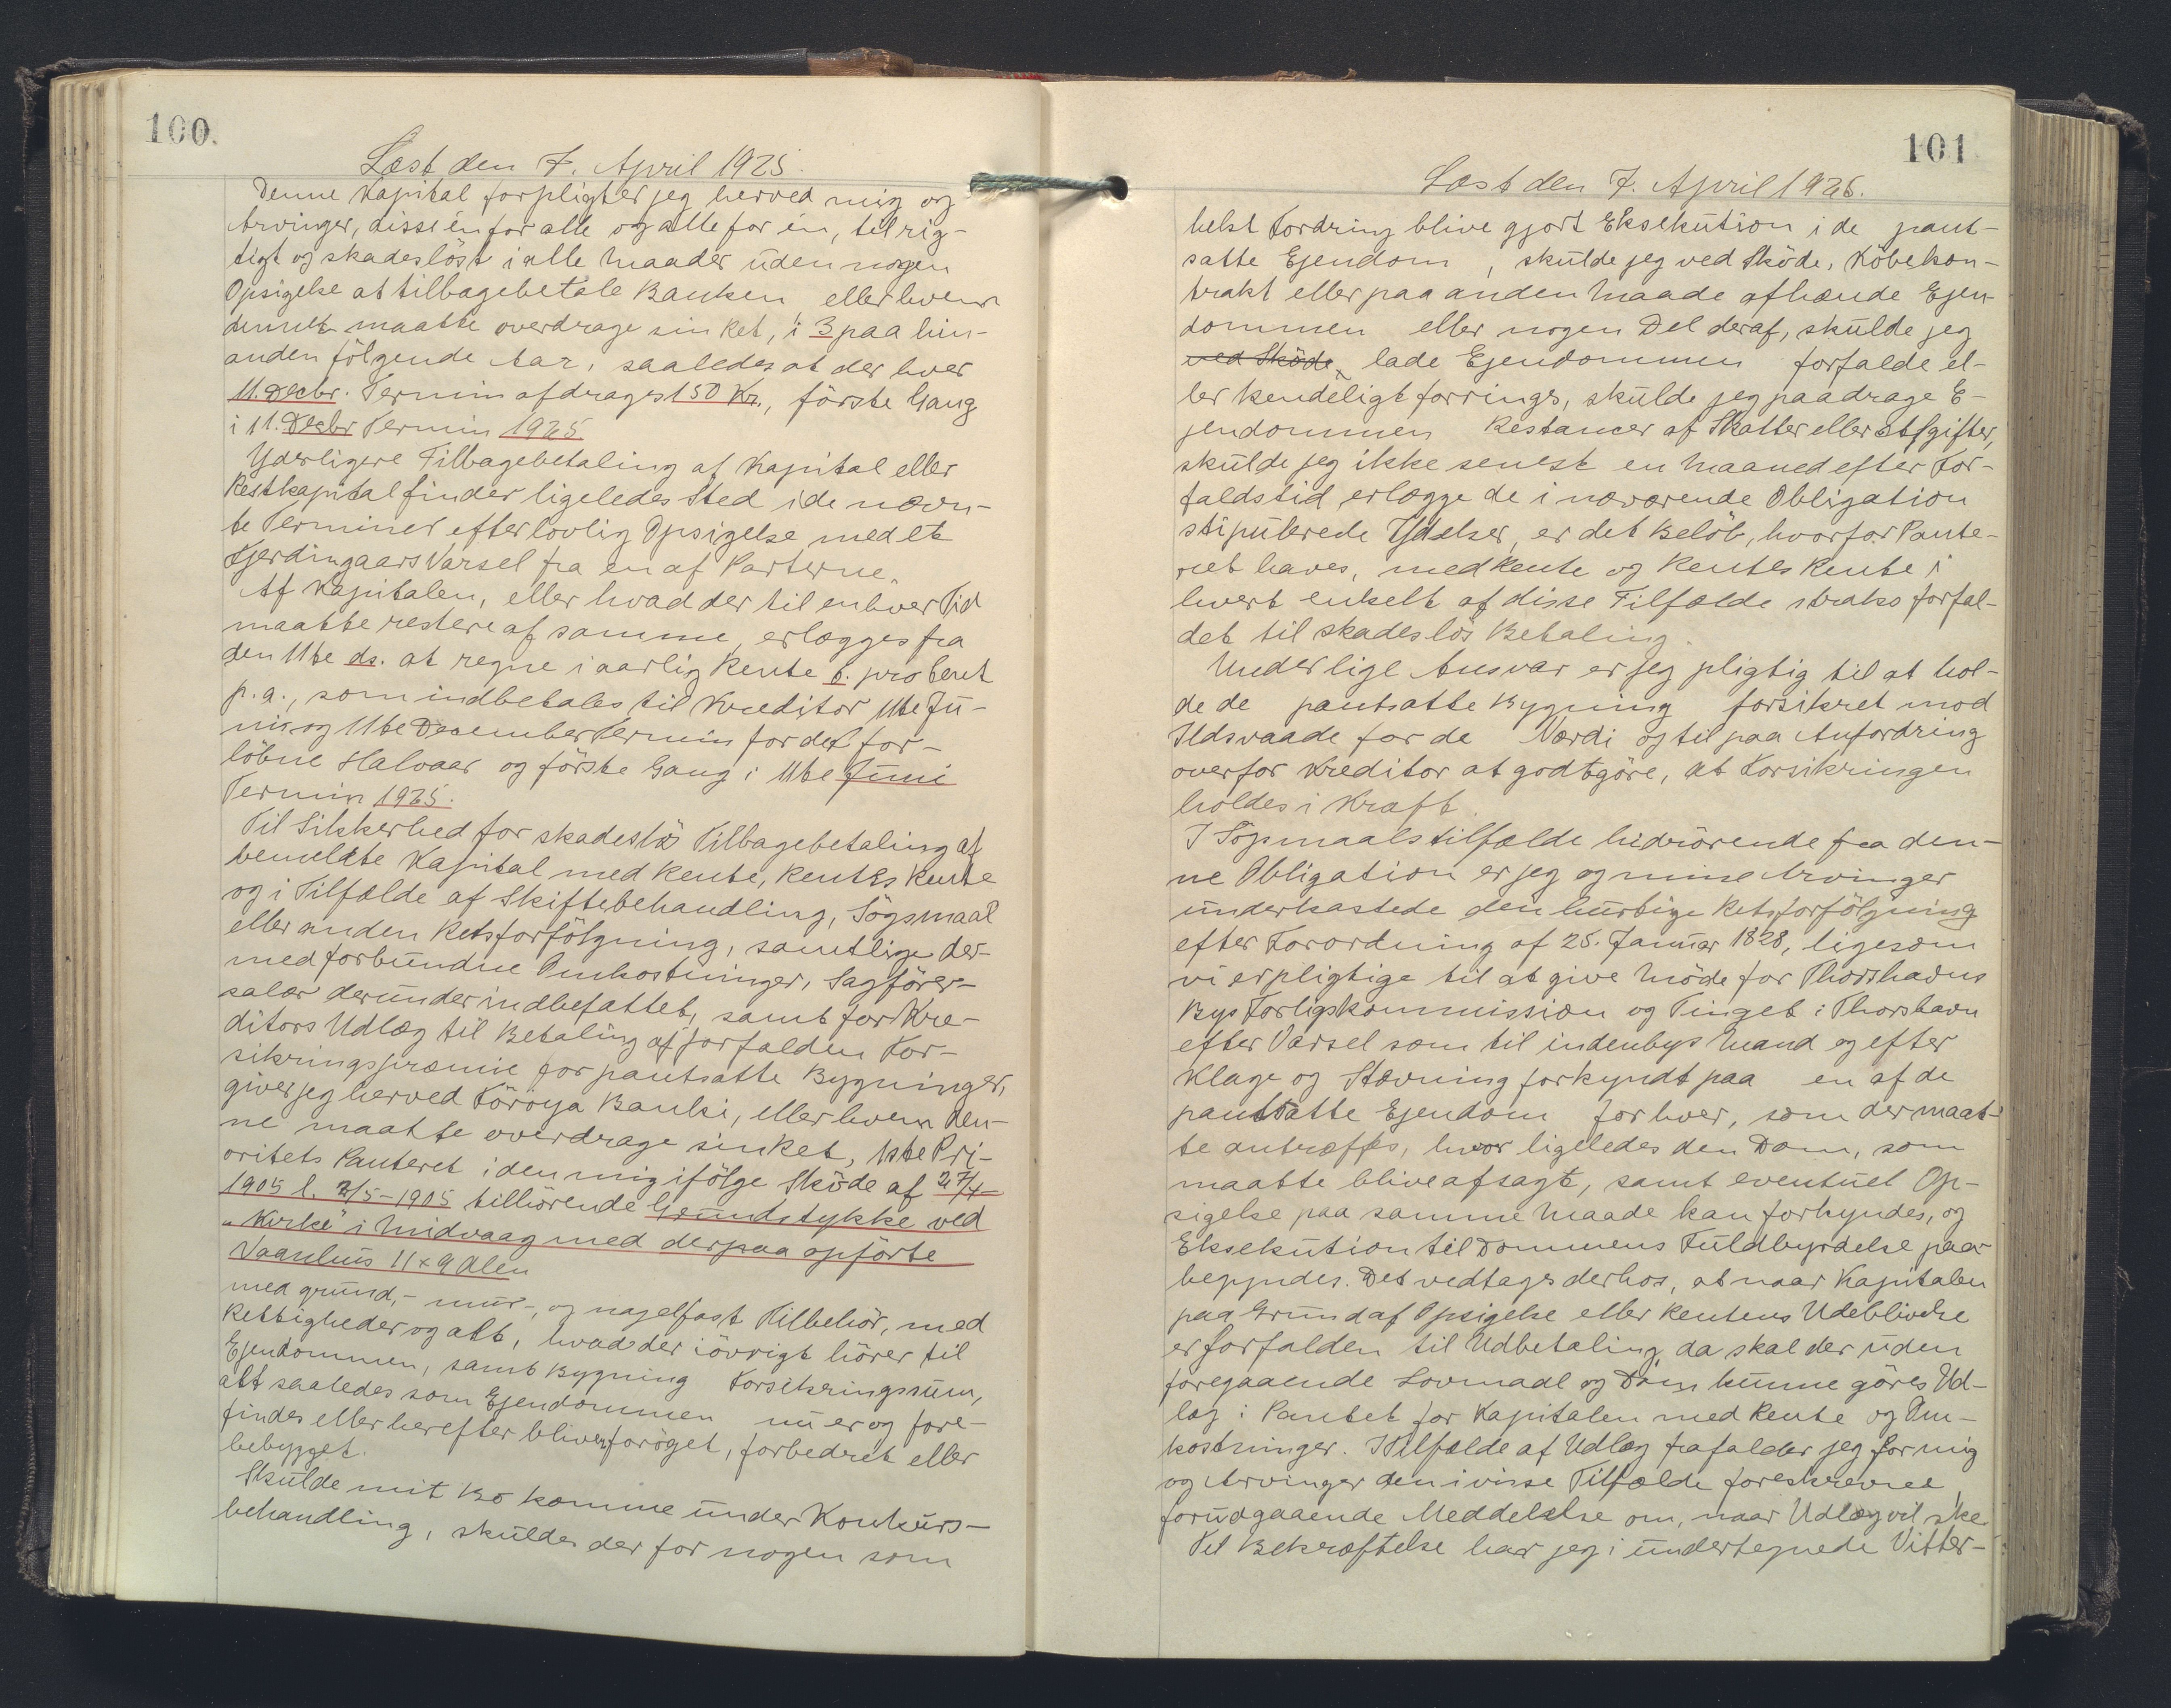 100.
Læst den 7. April 1925.
Denne Kapital forpligter jeg herved mig og
Arvinger, disse én for alle og alle for én, til rig-
tigt og skadesløst i alle Maader uden nogen
Opsigelse at tilbagebetale Banken eller hvem
denne maatte overdrage sin Ret, i 3 paa hin-
anden følgende Aar, saaledes at der hver
11. Decbr. Termin afdrages 150 Kr., første Gang
i 11. Decbr Termin 1925
Yderligere Tilbagebetaling af Kapital eller
Restkapital finder ligeledes Sted i de nævn-
te Terminer efter lovlig Opsigelse med et
Fjerdingaars Varsel fra en af Parterne.
Af Kapitalen, eller hvad der til enhver Tid
maatte restere af samme, erlægges fra
den 11te ds. at regne i aarlig Rente 6. pro Cent
p. a., som indbetales til Kreditor 11te Ju-
ni og 11te December Termin for det for-
løbne Halvaar og første Gang i 11te Juni
Termin 1925.
Til Sikkerhed for skadesløs Tilbagebetaling af
bemeldte Kapital med Rente, Rentes Rente
og i Tilfælde af Skiftebehandling, Søgsmaal
eller anden Retsforfølgning, samtlige der-
med forbundne Omkostninger, Sagfører-
salær derunder indbefattet, samt for Kre-
ditors Udlæg til Betaling af forfalden For-
sikringspræmie for pantsatte Bygninger,
giver jeg herved Föroya Banki, eller hvem den-
ne maatte overdrage sin Ret, 1ste Pri-
oritets Panteret i den mig ifølge Skøde af 27/4-
1905 l. 2/5-1905 tilhørende Grundstykke ved
"Kirke" i Midvaag med derpaa opførte
Vaanhus 11 x 9 Alen
med grund,- mur-, og nagelfast Tilbehør, med
Rettigheder og alt, hvad der iøvrigt hører til
Ejendommen, samt Bygning Forsikringssum,
alt saaledes som Ejendommen nu er og fore-
findes eller herefter bliver forøget, forbedret eller
bebygget.
Skulde mit Bo komme under Konkurs-
behandling, skulde der for nogen som
101
Læst den 7. April 1925.
helst Fordring blive gjort Eksekution i de pant-
satte Ejendom , skulde jeg ved Skøde, Købekon-
trakt eller paa anden Maade afhænde Ejen-
dommen eller nogen Del deraf, skulde jeg
ved Skøde, lade Ejendommen forfalde el-
ler kendeligt forringes, skulde jeg paadrage E-
jendommen Restancer af Skatter eller Afgifter,
skulde jeg ikke senest en Maaned efter For-
faldstid erlægge de i nærværende Obligation
stipulerede Ydelser, er det Beløb, hvorfor Pante-
ret haves, med Rente og Rentes Rente i
hvert enkelt af disse Tilfælde straks forfal-
det til skadesløs Betaling.
Under lige Ansvar er jeg pligtig til at hol-
de de pantsatte Bygning forsikret mod
Ildsvaade for de Værdi og til paa Anfordring
overfor Kreditor at godtgøre, at Forsikringen
holdes i Kraft.
I Søgsmaalstilfælde hidrørende fra den-
ne Obligation er jeg og mine Arvinger
underkastede den hurtige Retsforfølgning
efter Forordning af 25. Januar 1828, ligesom
vi er pligtige til at give Møde for Thorshavns
Bys Forligskommission og Tinget i Thorshavn
efter Varsel som til indenbys Mand og efter
Klage og Stævning forkyndt paa en af de
pantsatte Ejendom for hver, som der maat-
te antræffes, hvor ligeledes den Dom, som
maatte blive afsagt, samt eventuel Op-
sigelse paa samme Maade kan forkyndes, og
Eksekution til Dommens Fuldbyrdelse paa-
begyndes. Det vedtages derhos, at naar Kapitalen
paa Grund af Opsigelse eller Rentens Udeblivelse
er forfalden til Udbetaling, da skal der uden
foregaaende Lovmaal og Dom kunne gøres Ud-
læg i Pantet for Kapitalen med Rente og Om-
kostninger. I Tilfælde af Udlæg frafalder jeg for mig
og Arvinger den i visse Tilfælde foreskrevne
forudgaaende Meddelelse om, naar Udlæg vil ske.
Til Bekræftelse har jeg i undertegnede Vitter-